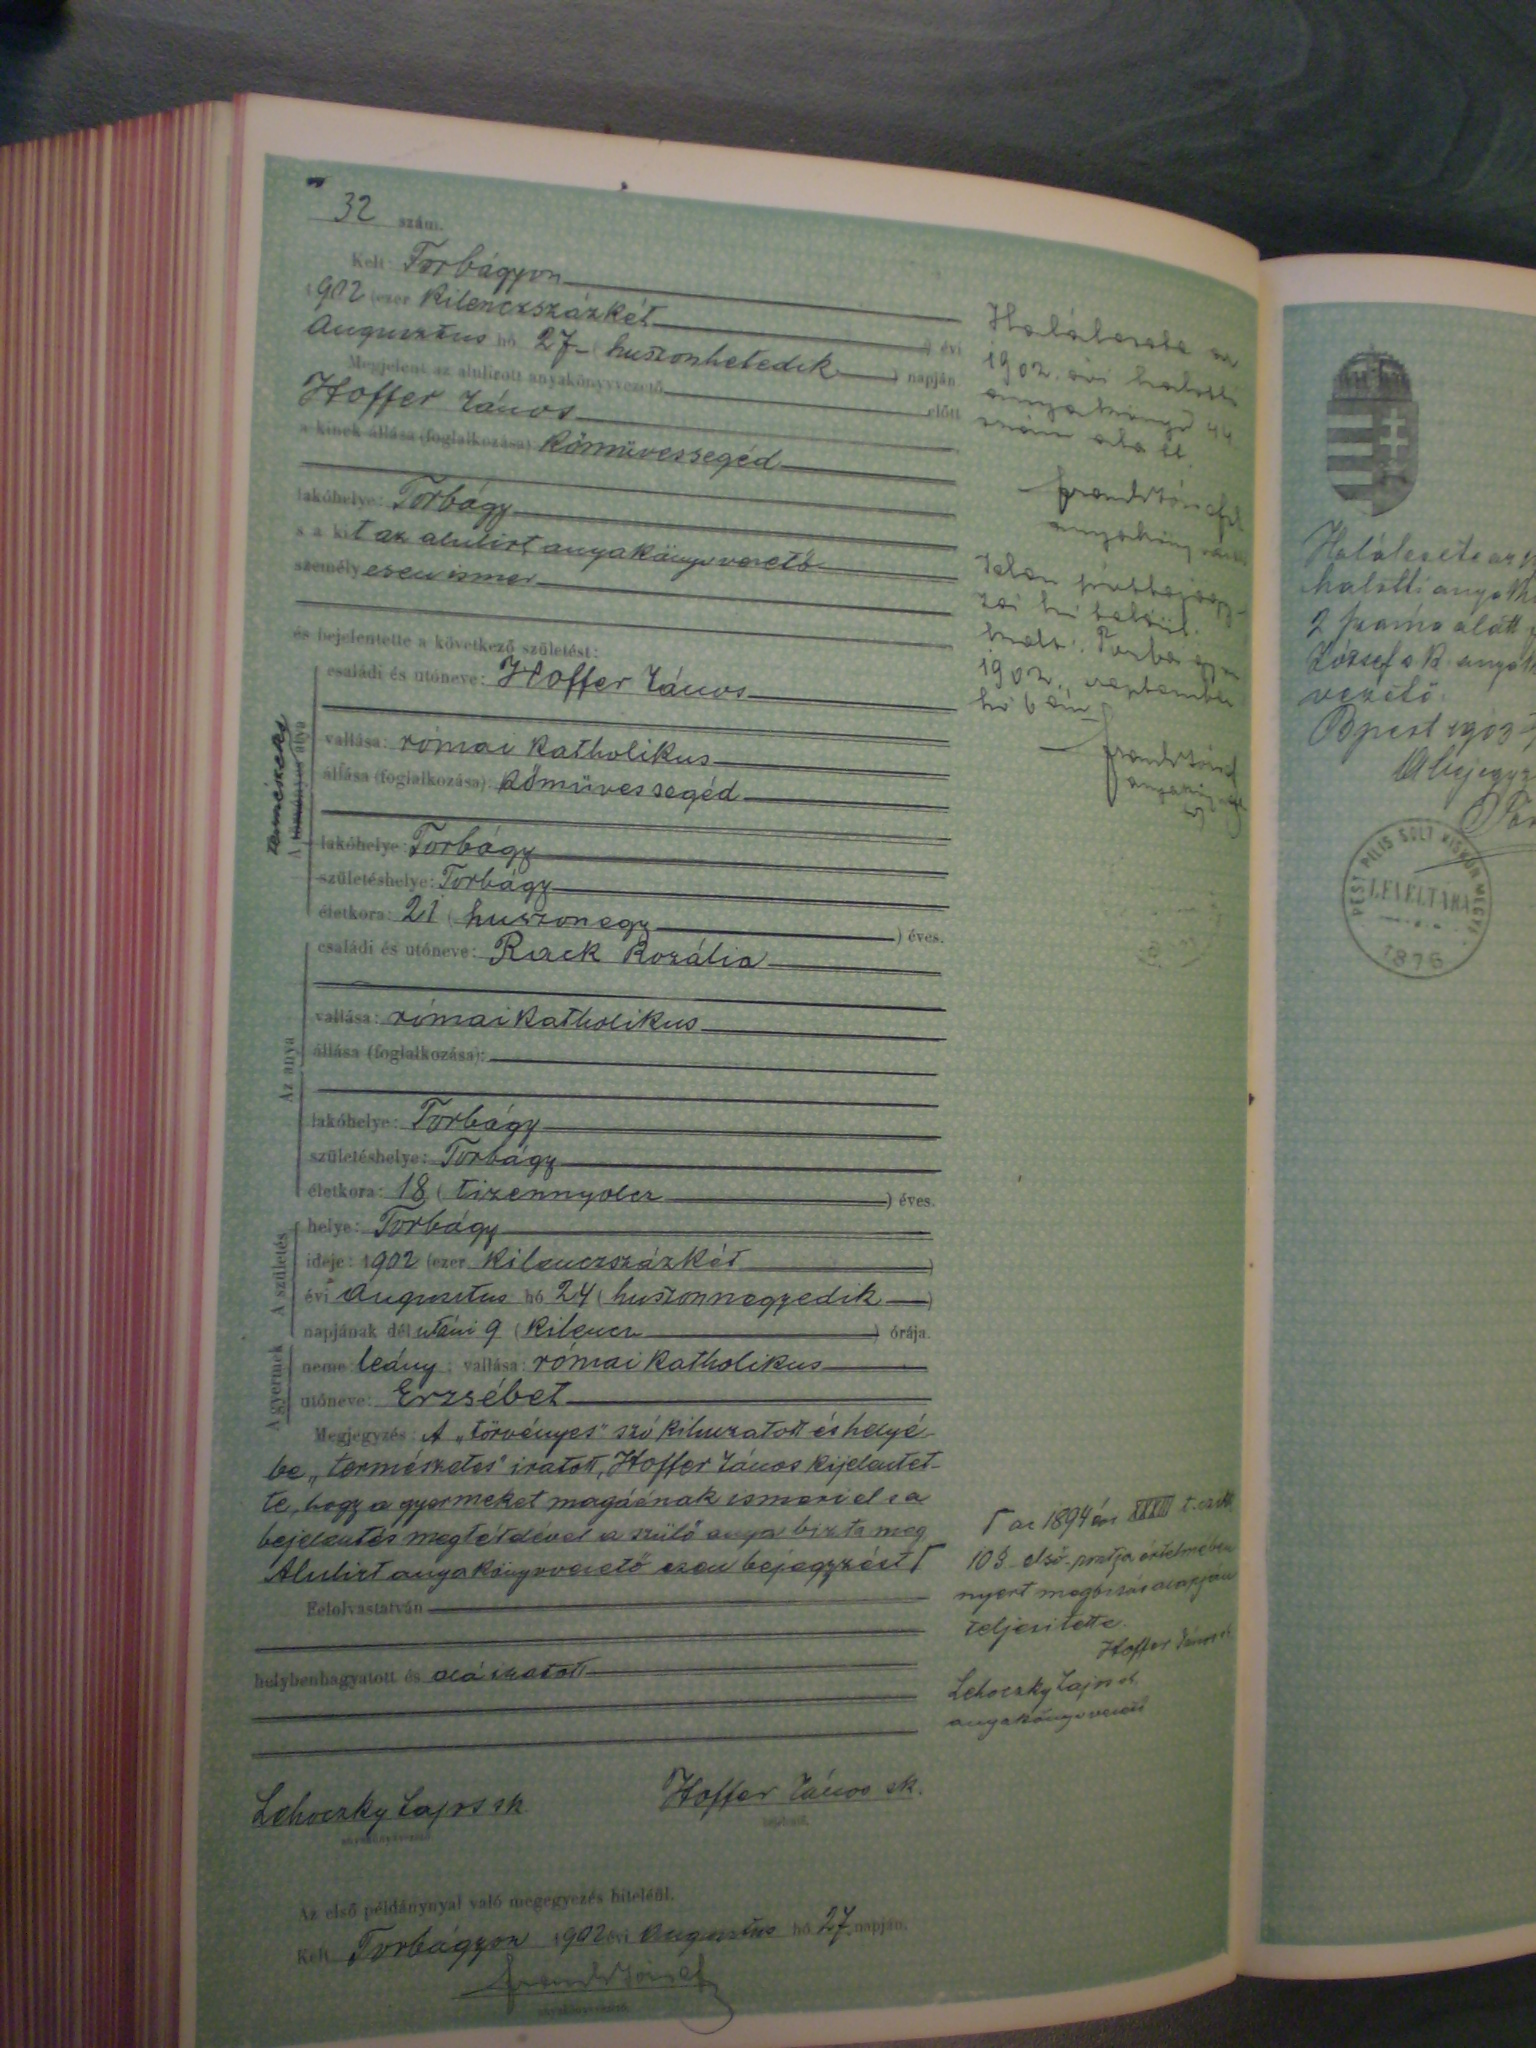 32 szám.
Kelt Torbágyon
1902 (ezer kilenczszázkét ) évi
Augusztus hó 27 (huszonhetedik ) napján
Megjelent az alulirott anyakönyvvezető előtt
Hoffer János
a kinek állása (foglalkozása) kőművessegéd
lakóhelye: Torbágy
s a kit az alulirt anyakönyvvezető
személyesen ismer
és bejelentette a következő születést:
A természetes atya
családi és utóneve: Hoffer János
vallása: római katholikus
állása (foglalkozása): kőművessegéd
lakóhelye: Torbágy
születéshelye: Torbágy
életkora: 21 (huszonegy ) éves.
Az anya
családi és utóneve: Rack Rozália
vallása: római katholikus
állása (foglalkozása):
lakóhelye: Torbágy
születéshelye: Torbágy
életkora: 18 (tizennyolcz ) éves.
A születés
helye: Torbágy
ideje: 1902 (ezer kilenczszázkét )
évi Augusztus hó 24 (huszonnegyedik )
napjának dél utáni 9 (kilencz ) órája.
A gyermek
neme leány; vallása: római katholikus
utóneve: Erzsébet
Megjegyzés: A "törvényes" szó kihuzatott és helyé-
be "természetes" iratott, Hoffer János kijelentet-
te, hogy a gyermeket magáénak ismeri el s a
bejelentés megtételével a szülő anya bizta meg
Alulirt anyakönyvvezető ezen bejegyzést Γ
Felolvastatván
helybenhagyatott és aláiratott
Lehoczky Lajos sk
anyakönyvvezető
Hoffer János sk.
bejelentő.
Az első példánynyal való megegyezés hiteléül.
Kelt Torbágyon 1902 évi Augusztus hó 27 napján.
József
anyakönyvvezető.
Halálesete az
1902. évi halotti
anyakönyv 44
szám alatt
József
anyakönyv
1902. szeptember
hó 6 án
József
Γ az 1894 évi XXXIII t. czikk
10 § első pontja értelmében
nyert megbizás alapján
teljesitette.
Hoffer János sk
Lehoczky Lajos sk.
anyakönyvvezető
Halálesete az
halotti anyak
2 száma alatt
József s k. anyak
vezető.
Bpest 1903
A bejegyz
PEST PILIS SOLT KISKUN MEGYE
LEVÉLTÁRA
1876